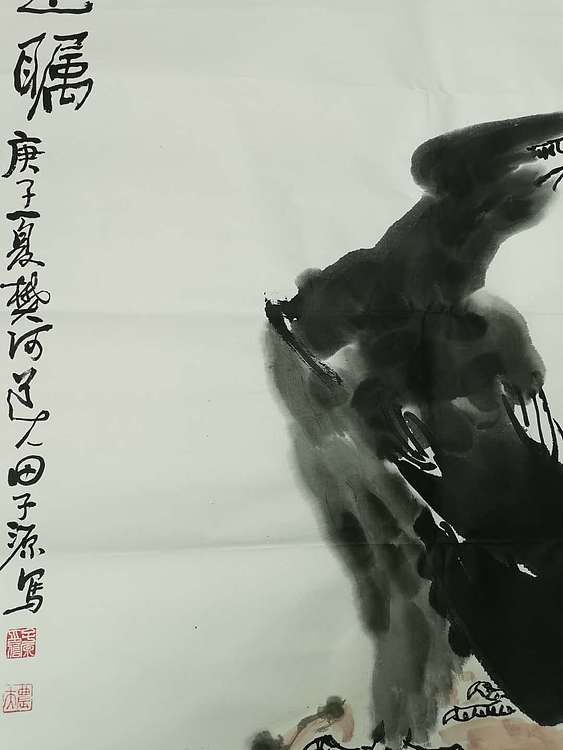 瞩
庚子夏樊河道人田子源写